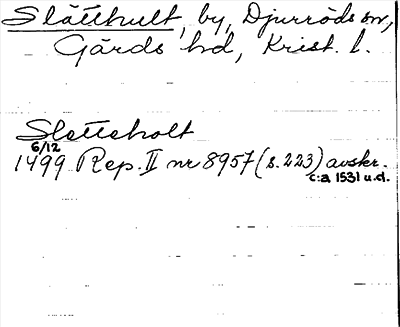 Slätthult, by, Djurröds sn,
Gärds hd, Krist. l.
Sletteholt
6/12
1499 Rep. II nr 8957 (s. 223) avskr.
c:a 1531 u.d.